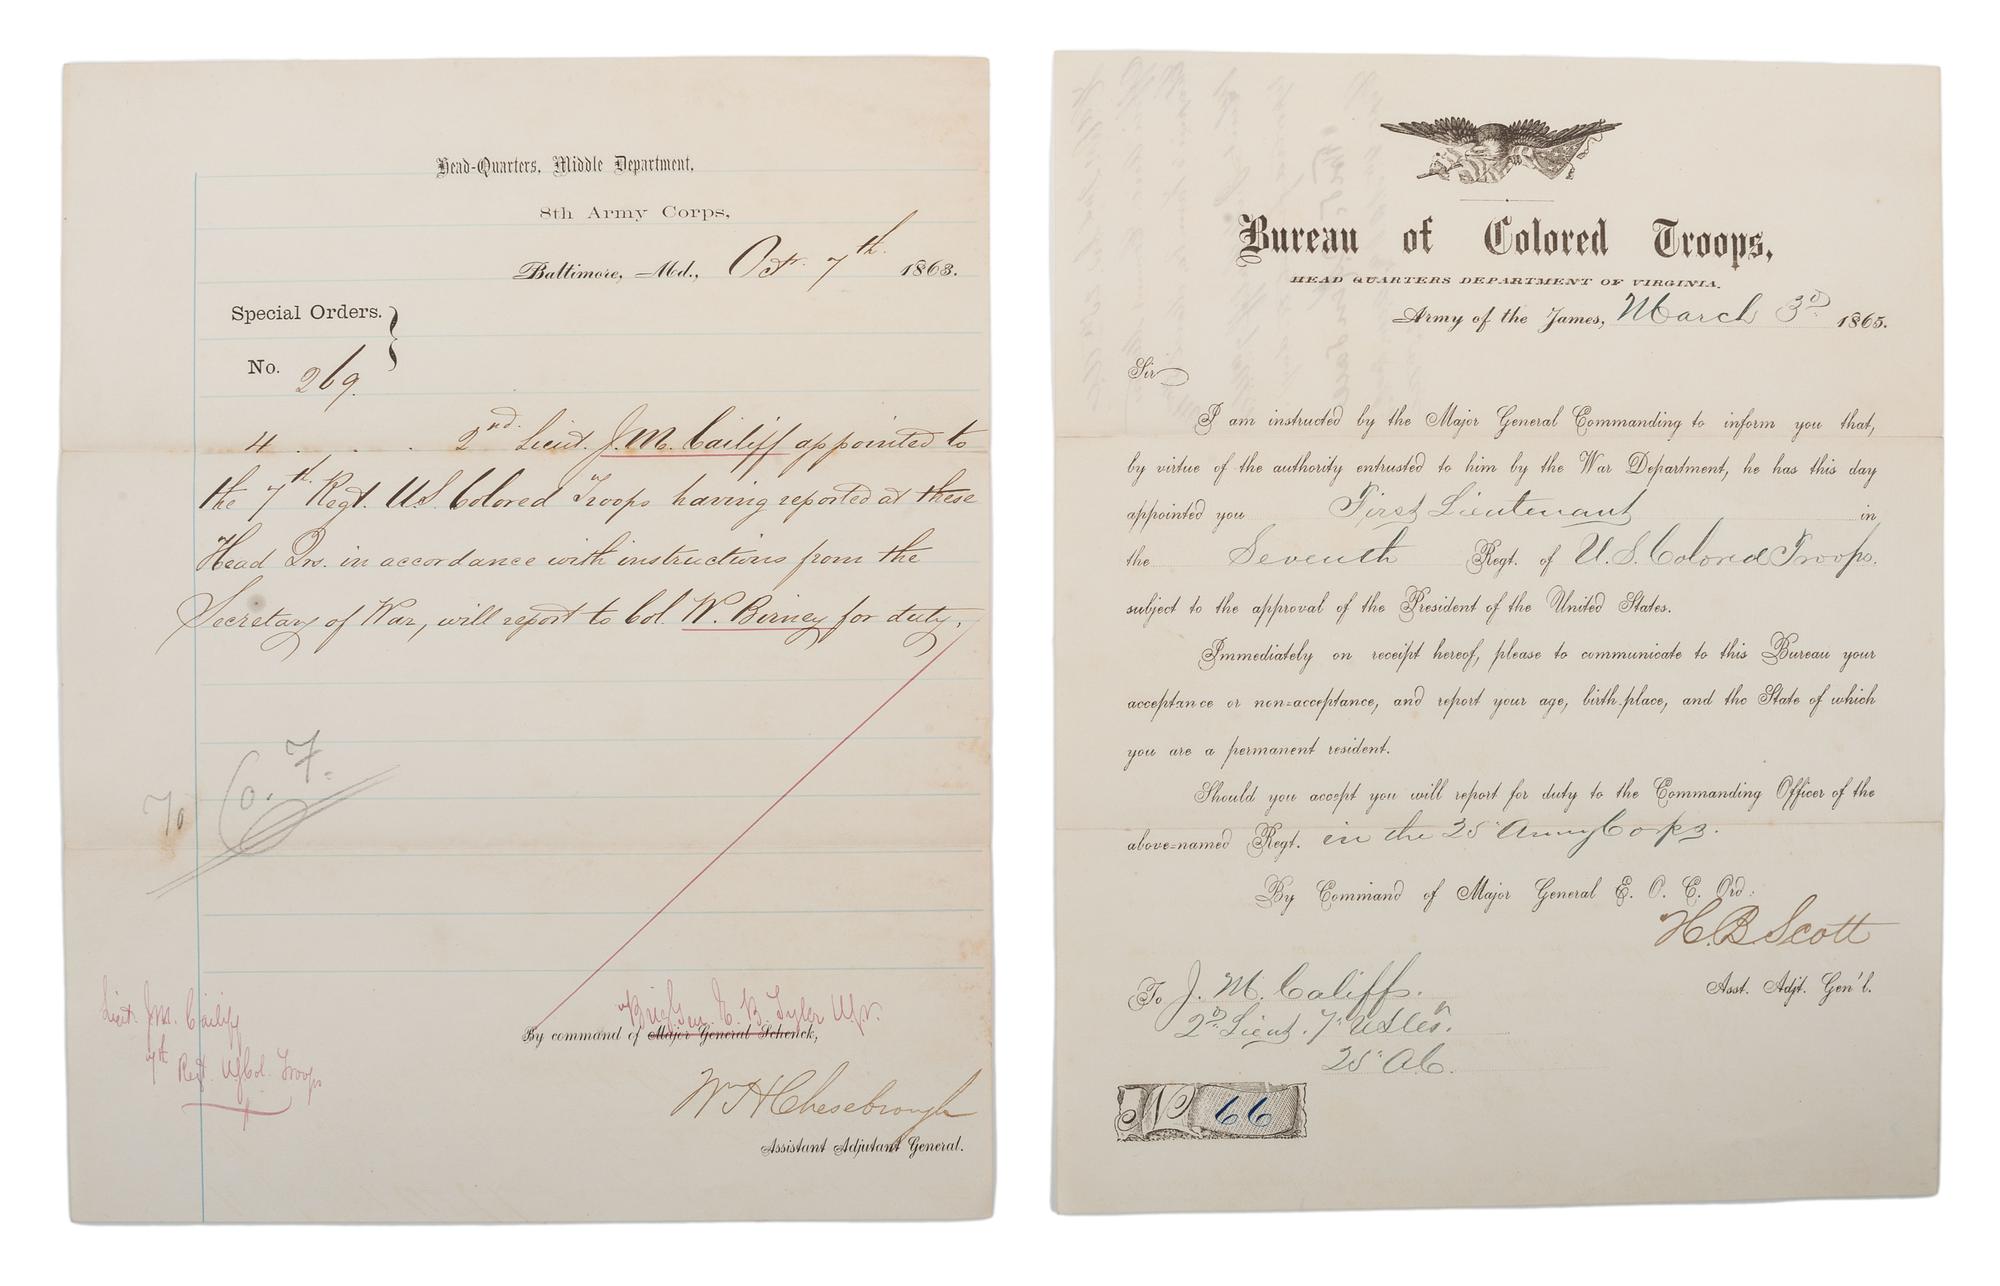 Head-Quarters, Middle Department,
8th Army Corps,
Baltimore, Md., Oct. 7th 1863.
Special Orders. }
No. 269.
4 . . . 2nd. Lieut. J. M. Cailiff appointed to
the 7th Regt. U.S. Colored Troops having reported at these
Head Qrs. in accordance with instructions from the
Secretary of War, will report to Col. W. Birney for duty.
Co. 7.
70
Brig Gen. E. B. Tyler
By command of Major General Schenck,
Lieut. J.M. Cailiff
7th Regt. U.S. Col. Troops
Wm H Chesebrough
Assistant Adjutant General.
Bureau of Colored Troops,
HEAD QUARTERS DEPARTMENT OF VIRGINIA.
Army of the James, March 3d 1865.
Sir
I am instructed by the Major General Commanding to inform you that,
by virtue of the authority entrusted to him by the War Department, he has this day
appointed you First Lieutenant in
the Seventh Regt. of U. S. Colored Troops.
subject to the approval of the President of the United States.
Immediately on receipt hereof, please to communicate to this Bureau your
acceptance or non-acceptance, and report your age, birth-place, and the State of which
you are a permanent resident.
Should you accept you will report for duty to the Commanding Officer of the
above-named Regt. in the 25 Army Corps.
By Command of Major General E. O. C. Ord.
H. B Scott
Asst. Adjt. Gen'l.
To J. M. Califf.
2d Lieut. 7
25 A.C.
No 66